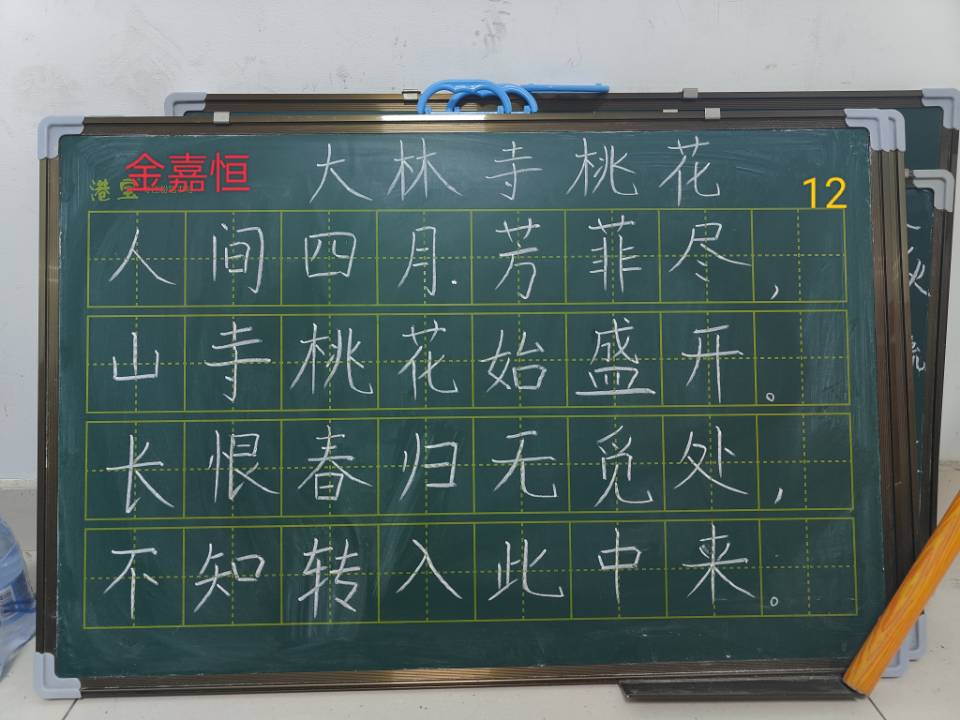 金嘉恒
港宝
大林寺桃花
12
人间四月.芳菲尽,
山寺桃花始盛开。
长恨春归无觅处,
不知转入此中来。